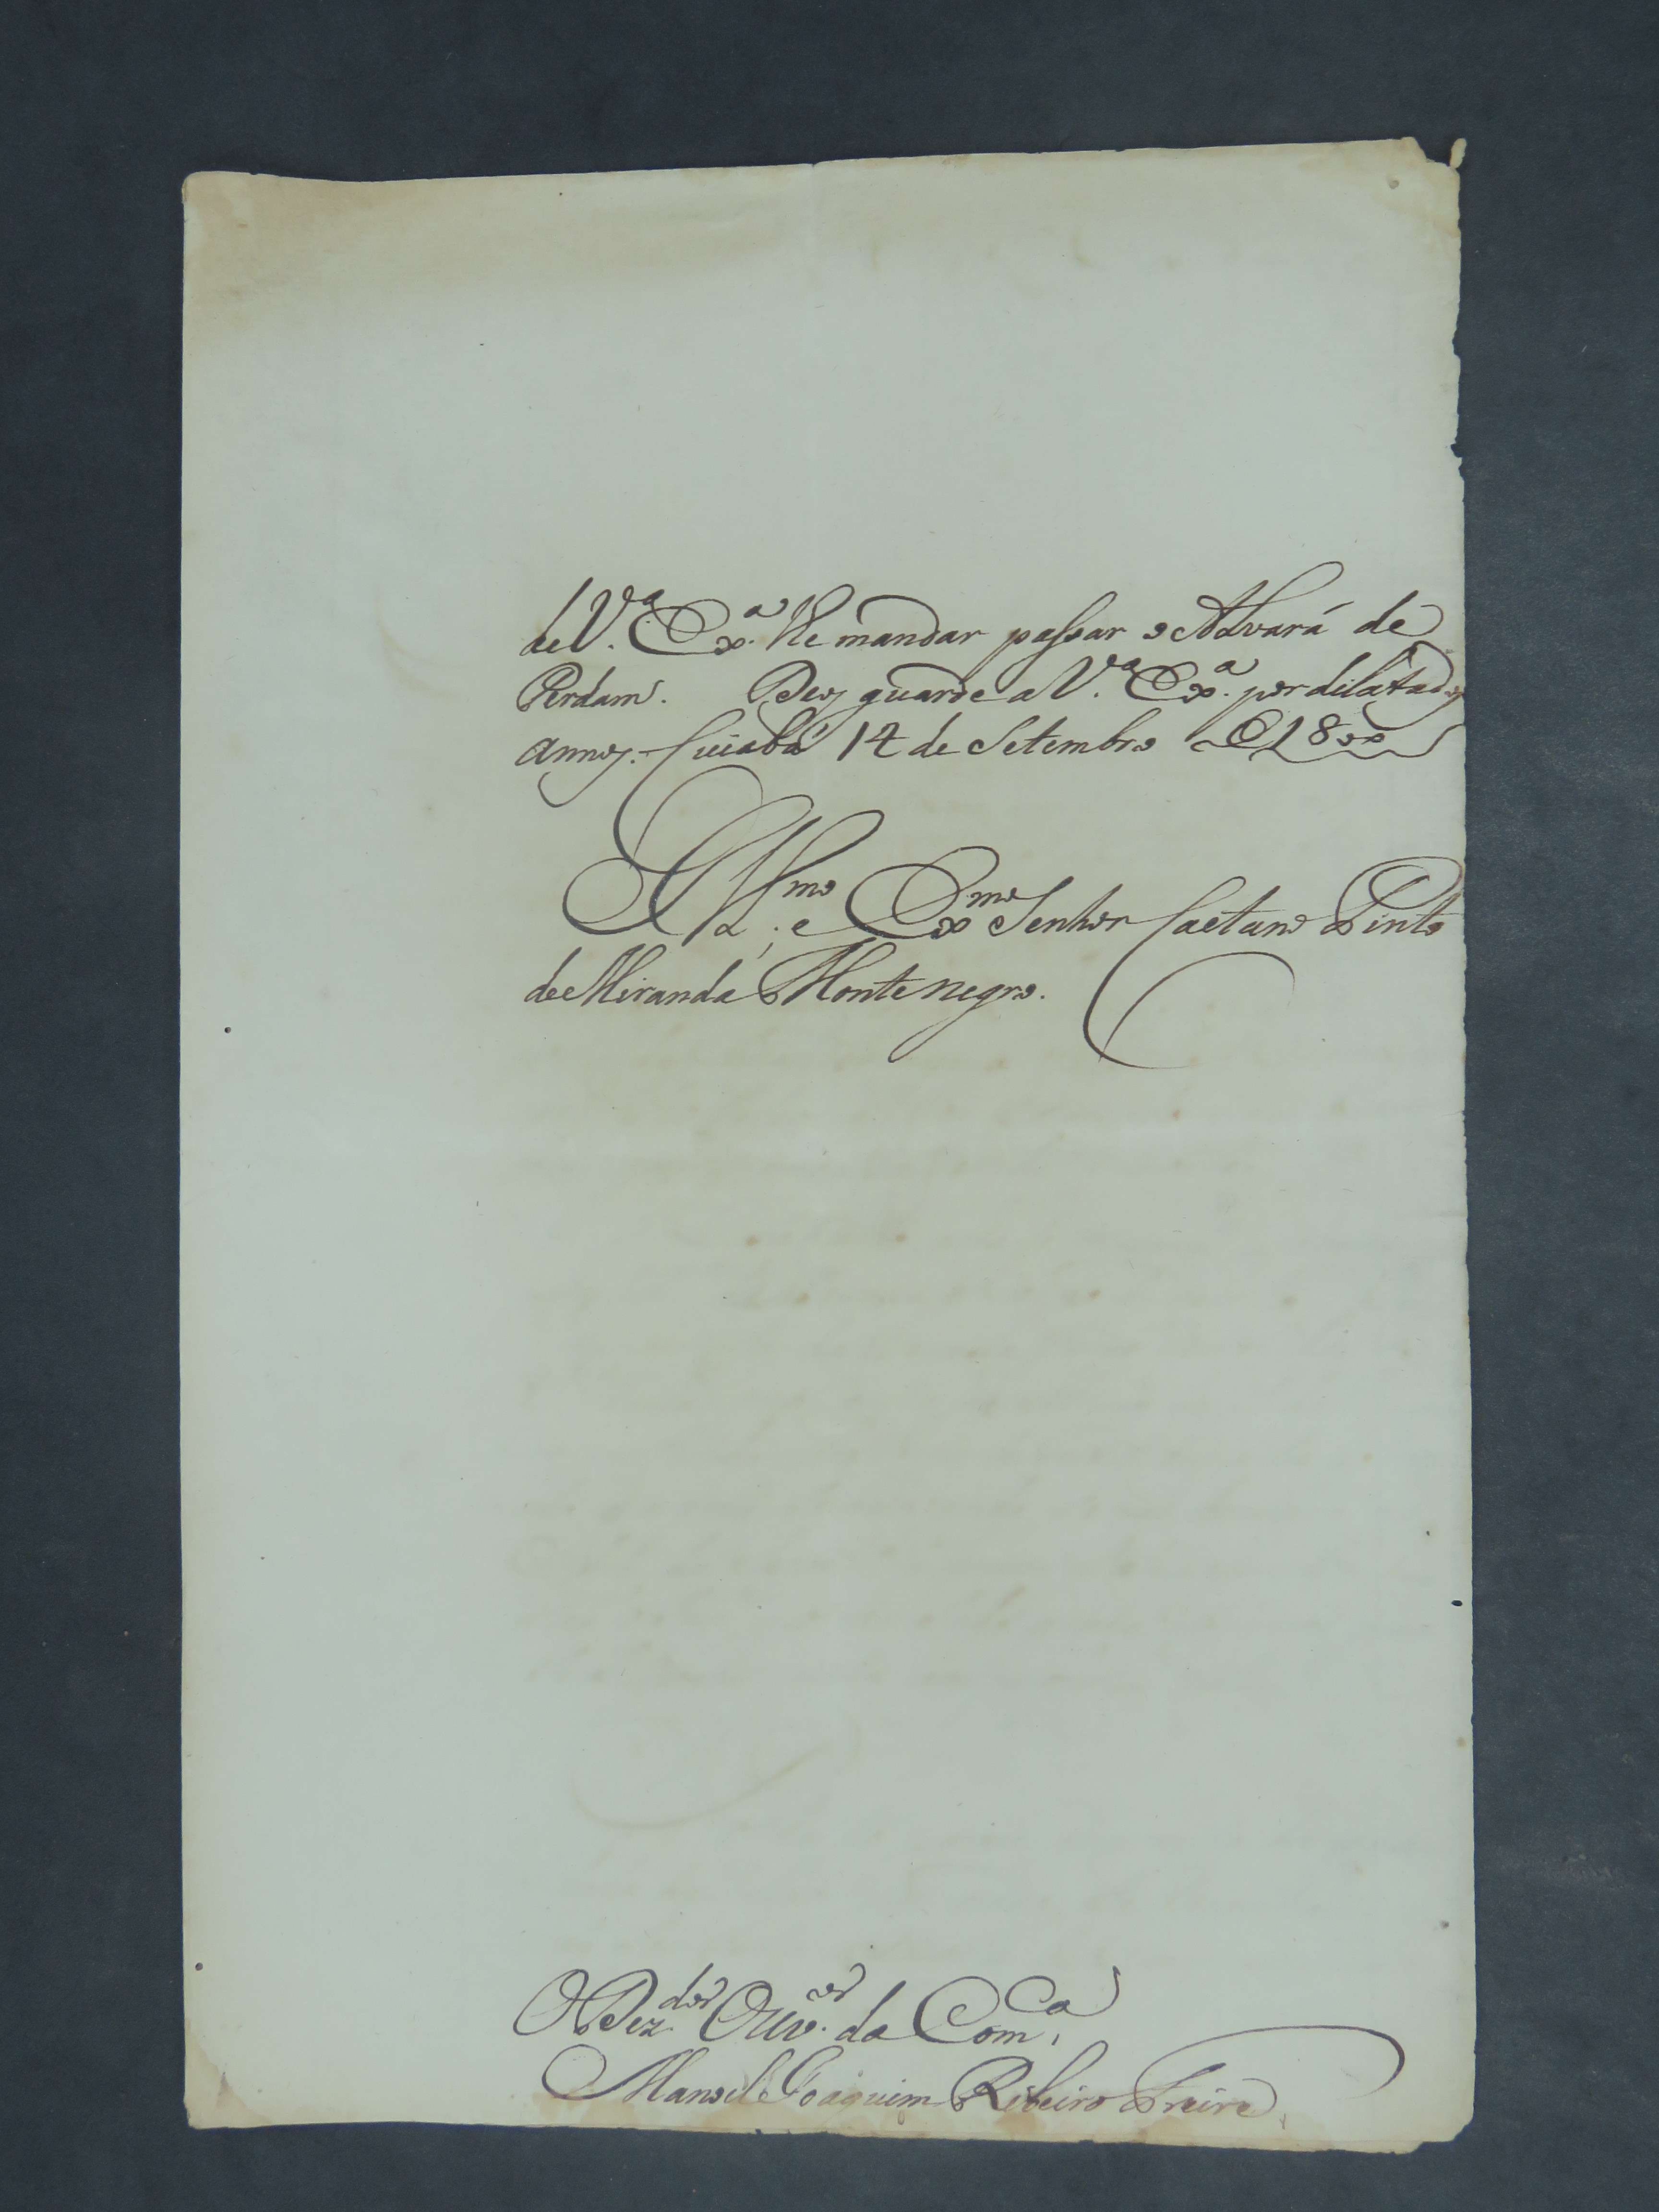 de V.ª Ex.ª lhe mandar passar o Alvará de
Perdam. Deos guarde a V.ª Ex.ª por dilatados
annos. Cuiabá 14 de Setembro de 1800
Illmo. e Exmo Senhor Caetano Pinto
de Miranda Montenegro.
O Dez.dor Ouv.or da Com.ca
Manoel Joaquim Ribeiro Freire